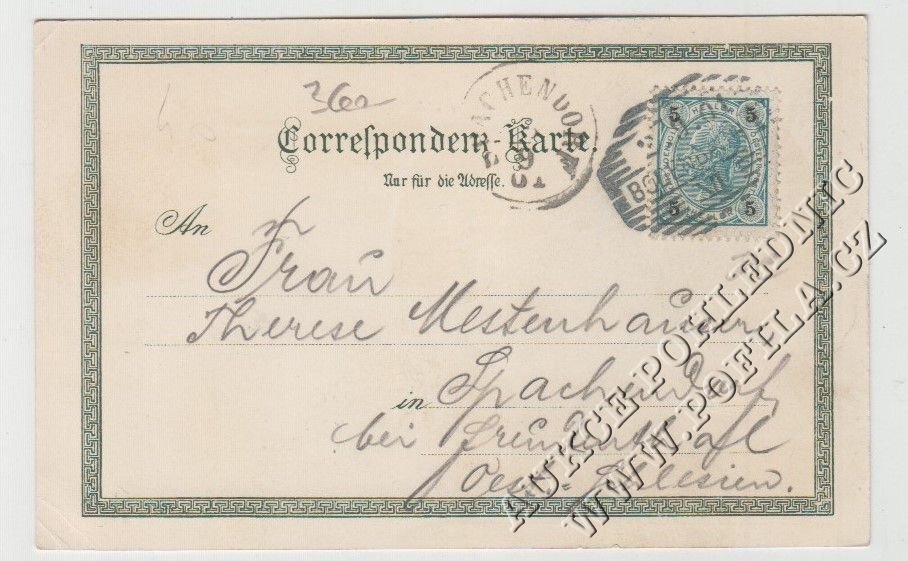 360
Correspondenz-Karte.
Nur für die Adresse.
ACHENDO
9
01
5 5
5 5
An
Frau
Therese Mestenhauser
in Spachendorf
bei Freudenthal
Oest. Schlesien.
AUKCE POHLEDNIC
WWW.POFILA.CZ